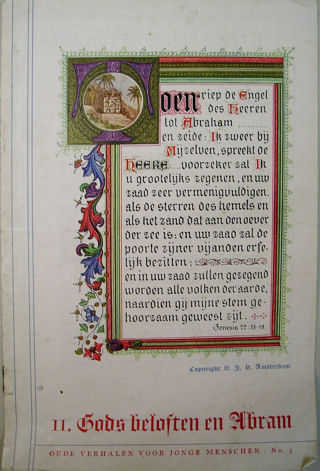 Toen riep de Engel
des Heeren
tot Abraham
en zeide: Ik zweer bij
Mijzelven, spreekt de
HEERE....voorzeker zal Ik
u grootelijks zegenen, en uw
zaad zeer vermenigvuldigen,
als de sterren des hemels en
als het zand dat aan den oever
der zee is; en uw zaad zal de
poorte zijner vijanden erfe-
lijk bezitten;
en in uw zaad zullen gezegend
worden alle volken der aarde,
naardien gij mijne stem ge-
hoorzaam geweest zijt.
Genesis 22:15-18
Copyright Amsterdam
11. Gods beloften en Abram
OUDE VERHALEN VOOR JONGE MENSCHEN. No.